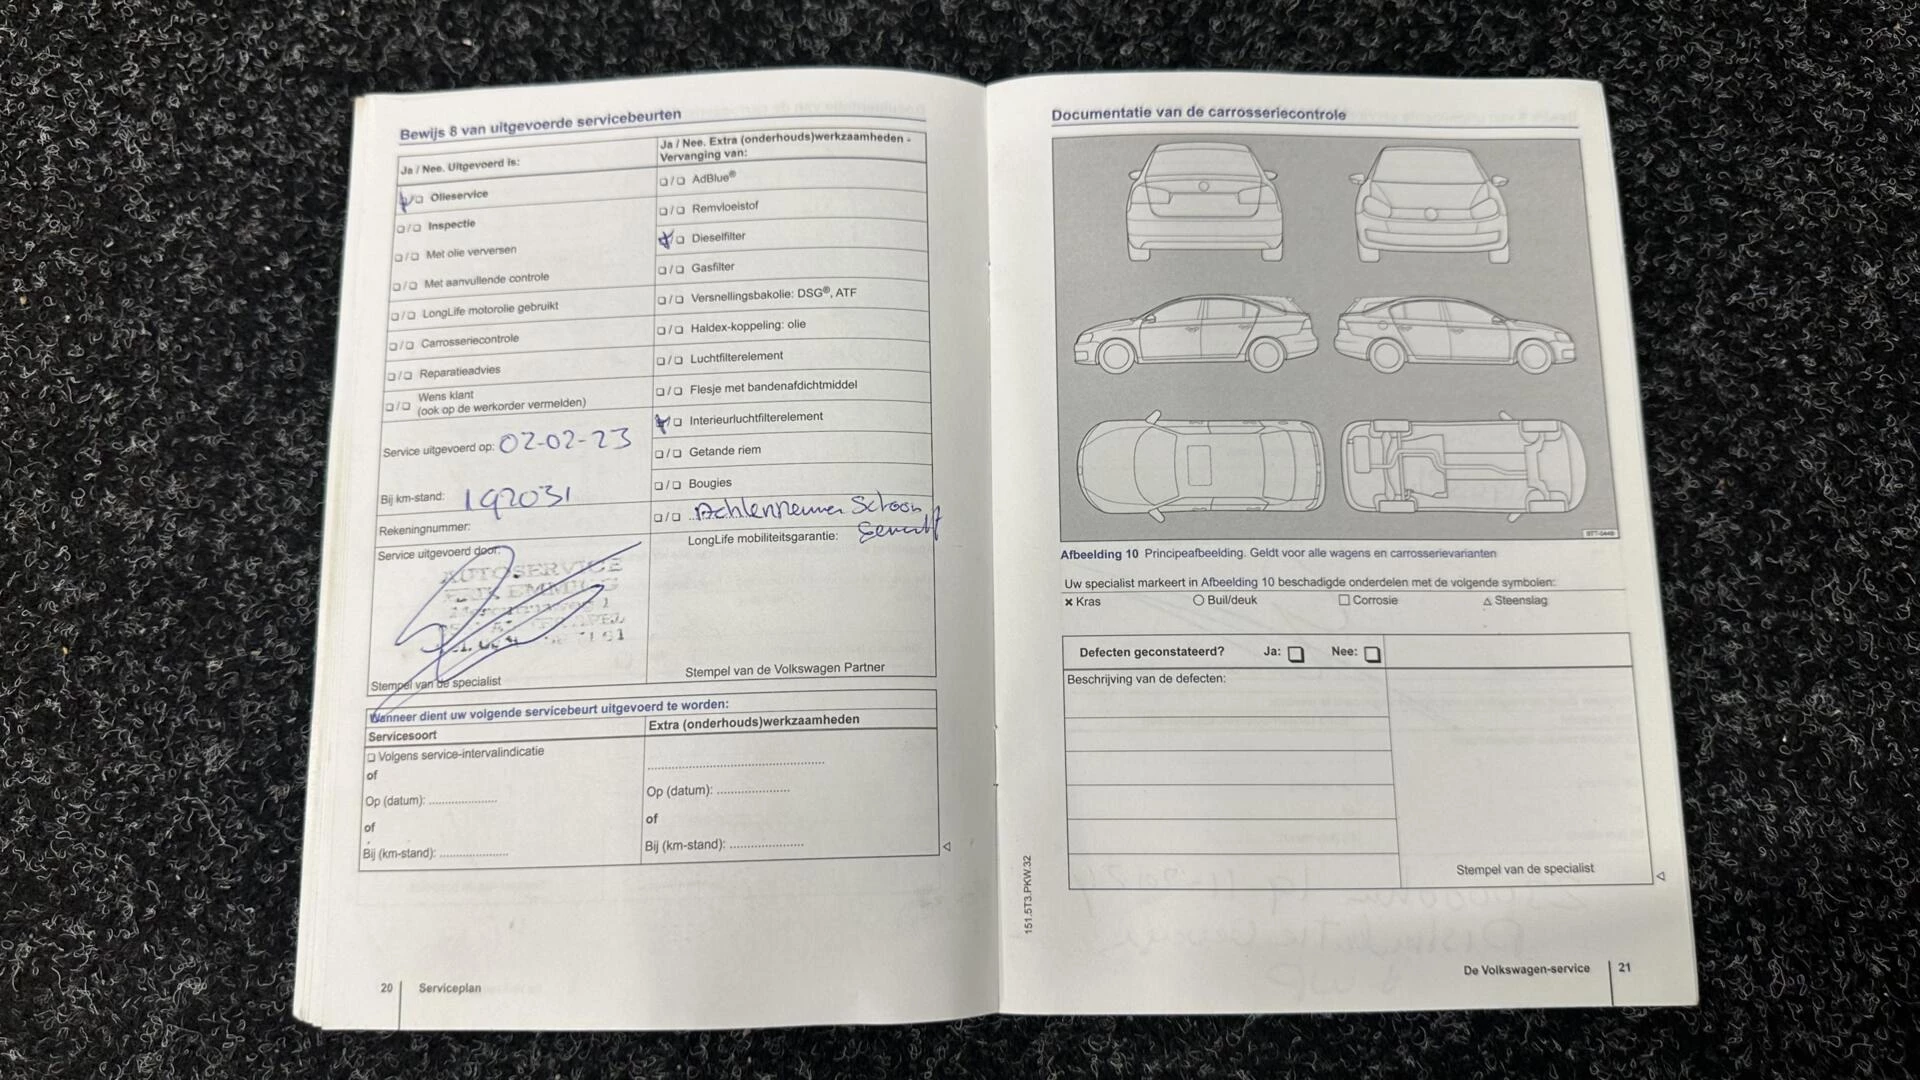 Bewijs 8 van uitgevoerde servicebeurten
Ja / Nee. Uitgevoerd is:
❑ Olieservice
❑ / ❑ Inspectie
❑ / ❑ Met olie verversen
❑ / ❑ Met aanvullende controle
❑ / ❑ LongLife motorolie gebruikt
❑ / ❑ Carrosseriecontrole
❑ / ❑ Reparatieadvies
❑ / ❑ Wens klant
(ook op de werkorder vermelden)
Service uitgevoerd op: 02-02-23
Bij km-stand: 192031
Rekeningnummer:
Service uitgevoerd door:
AUTOSERVICE
Stempel van de specialist
Ja / Nee. Extra (onderhouds)werkzaamheden -
Vervanging van:
❑ / ❑ AdBlue®
❑ / ❑ Remvloeistof
❑ Dieselfilter
❑ / ❑ Gasfilter
❑ / ❑ Versnellingsbakolie: DSG®, ATF
❑ / ❑ Haldex-koppeling: olie
❑ / ❑ Luchtfilterelement
❑ / ❑ Flesje met bandenafdichtmiddel
❑ Interieurluchtfilterelement
❑ / ❑ Getande riem
❑ / ❑ Bougies
❑ / ❑ Achterremmen Schoon
LongLife mobiliteitsgarantie:
Stempel van de Volkswagen Partner
Wanneer dient uw volgende servicebeurt uitgevoerd te worden:
Servicesoort
❑ Volgens service-intervalindicatie
of
Op (datum): ....................
of
Bij (km-stand): ....................
Extra (onderhouds)werkzaamheden
..................................................
Op (datum): ....................
of
Bij (km-stand): ....................
20 Serviceplan
Documentatie van de carrosseriecontrole
Afbeelding 10 Principeafbeelding. Geldt voor alle wagens en carrosserievarianten
Uw specialist markeert in Afbeelding 10 beschadigde onderdelen met de volgende symbolen:
× Kras ○ Buil/deuk □ Corrosie △ Steenslag
Defecten geconstateerd? Ja: ❑ Nee: ❑
Beschrijving van de defecten:
Stempel van de specialist
151.5T3.PKW.32
De Volkswagen-service 21